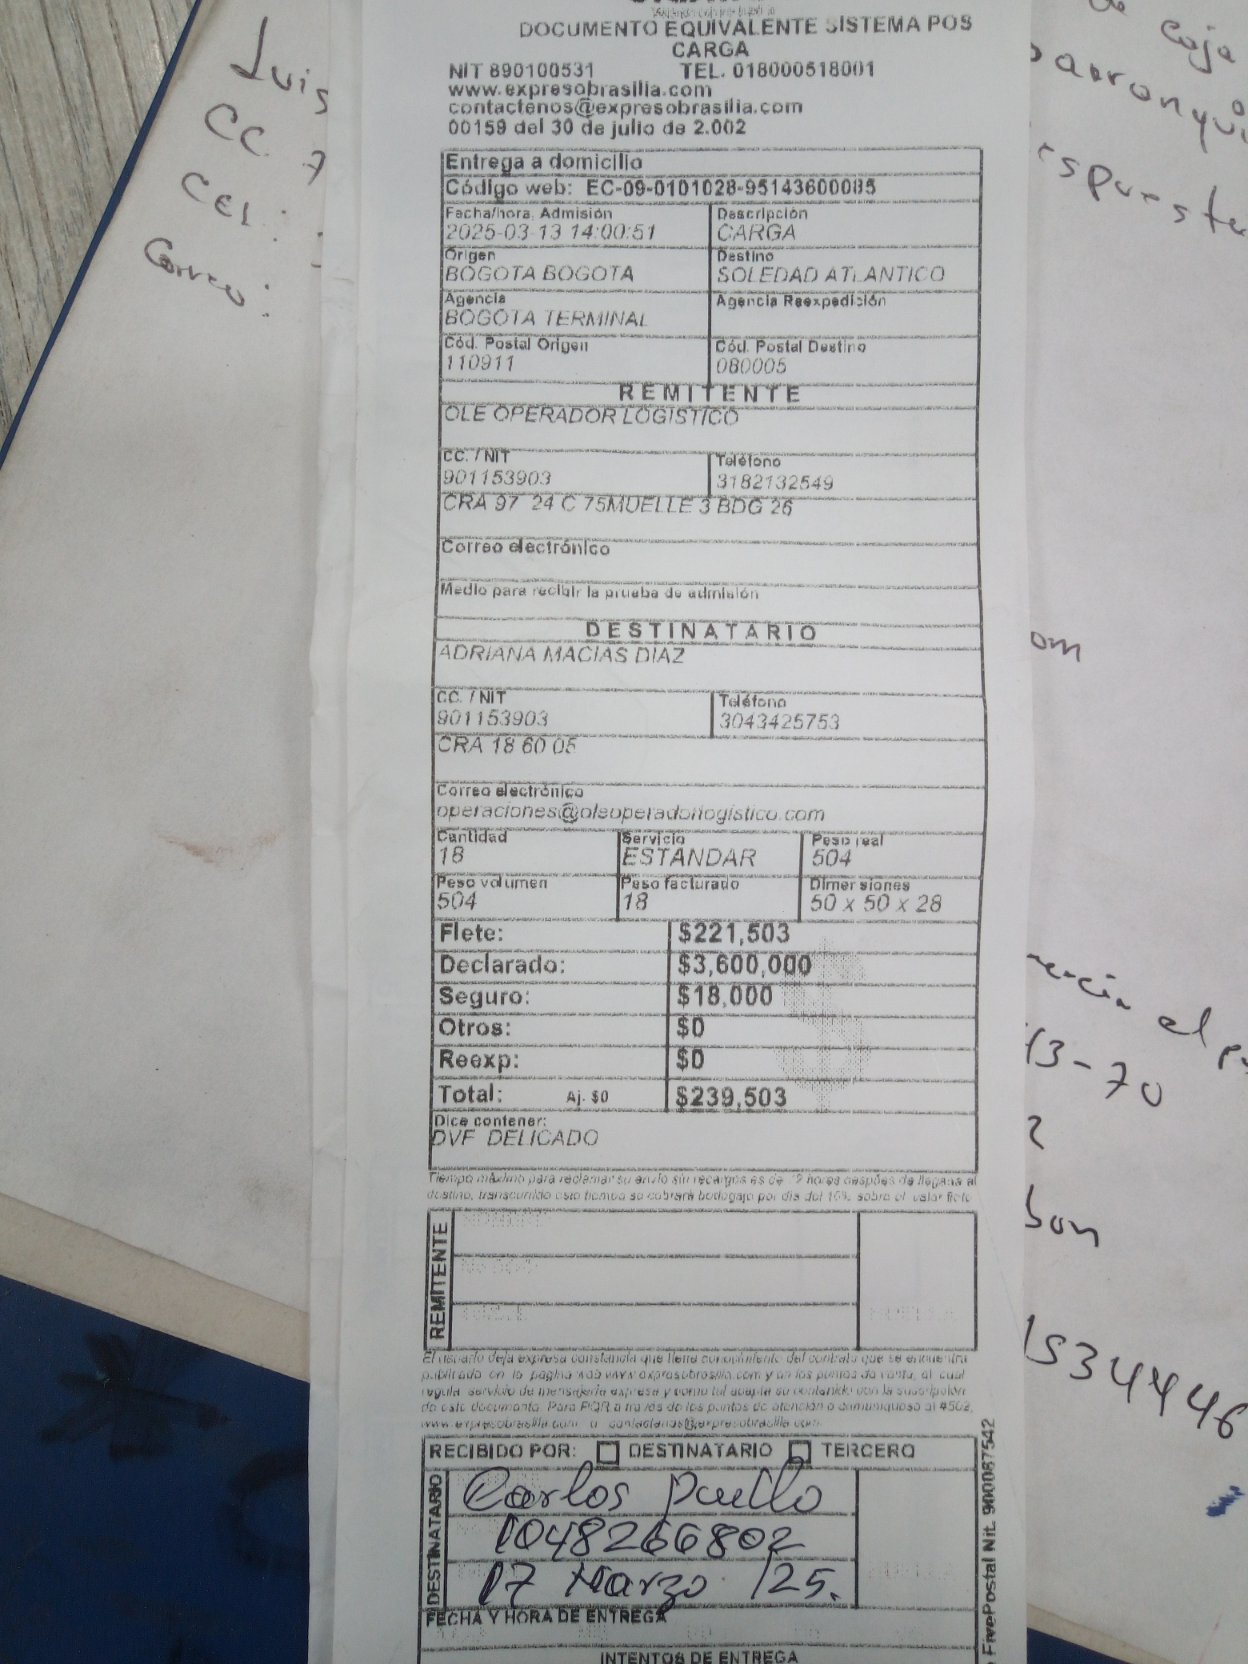 DOCUMENTO EQUIVALENTE SISTEMA POS
CARGA
NIT 890100531 TEL. 018000518001
www.expresobrasilia.com
contactenos@expresobrasilia.com
00159 del 30 de julio de 2.002
Entrega a domicilio
Código web: EC-09-0101028-95143600085
Fecha/hora, Admisión Descripción
2025-03-13 14:00:51 CARGA
Origen Destino
BOGOTA BOGOTA SOLEDAD ATLANTICO
Agencia Agencia Reexpedición
BOGOTA TERMINAL
Cód. Postal Origen Cód. Postal Destino
110911 080005
REMITENTE
OLE OPERADOR LOGISTICO
CC. / NIT Teléfono
901153903 3182132549
CRA 97 24 C 75MUELLE 3 BDG 26
Correo electrónico
Medio para recibir la prueba de admisión
DESTINATARIO
ADRIANA MACIAS DIAZ
CC. / NIT Teléfono
901153903 3043425753
CRA 18 60 05
Correo electrónico
operaciones@oleoperadorlogistico.com
Cantidad Servicio Peso real
18 ESTANDAR 504
Peso volumen Peso facturado Dimensiones
504 18 50 x 50 x 28
Flete: $221,503
Declarado: $3,600,000
Seguro: $18,000
Otros: $0
Reexp: $0
Total: Aj. $0 $239,503
Dice contener:
DVF DELICADO
Tiempo máximo para reclamar su envío sin recargos es de 72 horas después de llegana al
destino, transcurrido este tiempo se cobrará bodegaje por día del 10% sobre el valor flete
REMITENTE
El usuario deja expresa constancia que tiene conocimiento del contrato que se encuentra
publicado en la página web www.expresobrasilia.com y en los puntos de venta, el cual
regula servicio de mensajería expresa y como tal acepta su contenido con la suscripción
de este documento. Para PQR a través de los puntos de atención o comuníquese al #502,
www.expresobrasilia.com o contactenos@expresobrasilia.com
RECIBIDO POR: DESTINATARIO TERCERO
DESTINATARIO
Carlos Puello
1048266802
17 Marzo /25.
FECHA Y HORA DE ENTREGA
INTENTOS DE ENTREGA
FivePostal Nit. 900087542
Luis
CC. 7
CEL:
Correo:
de caja
om
el
13-70
2
son
1534446